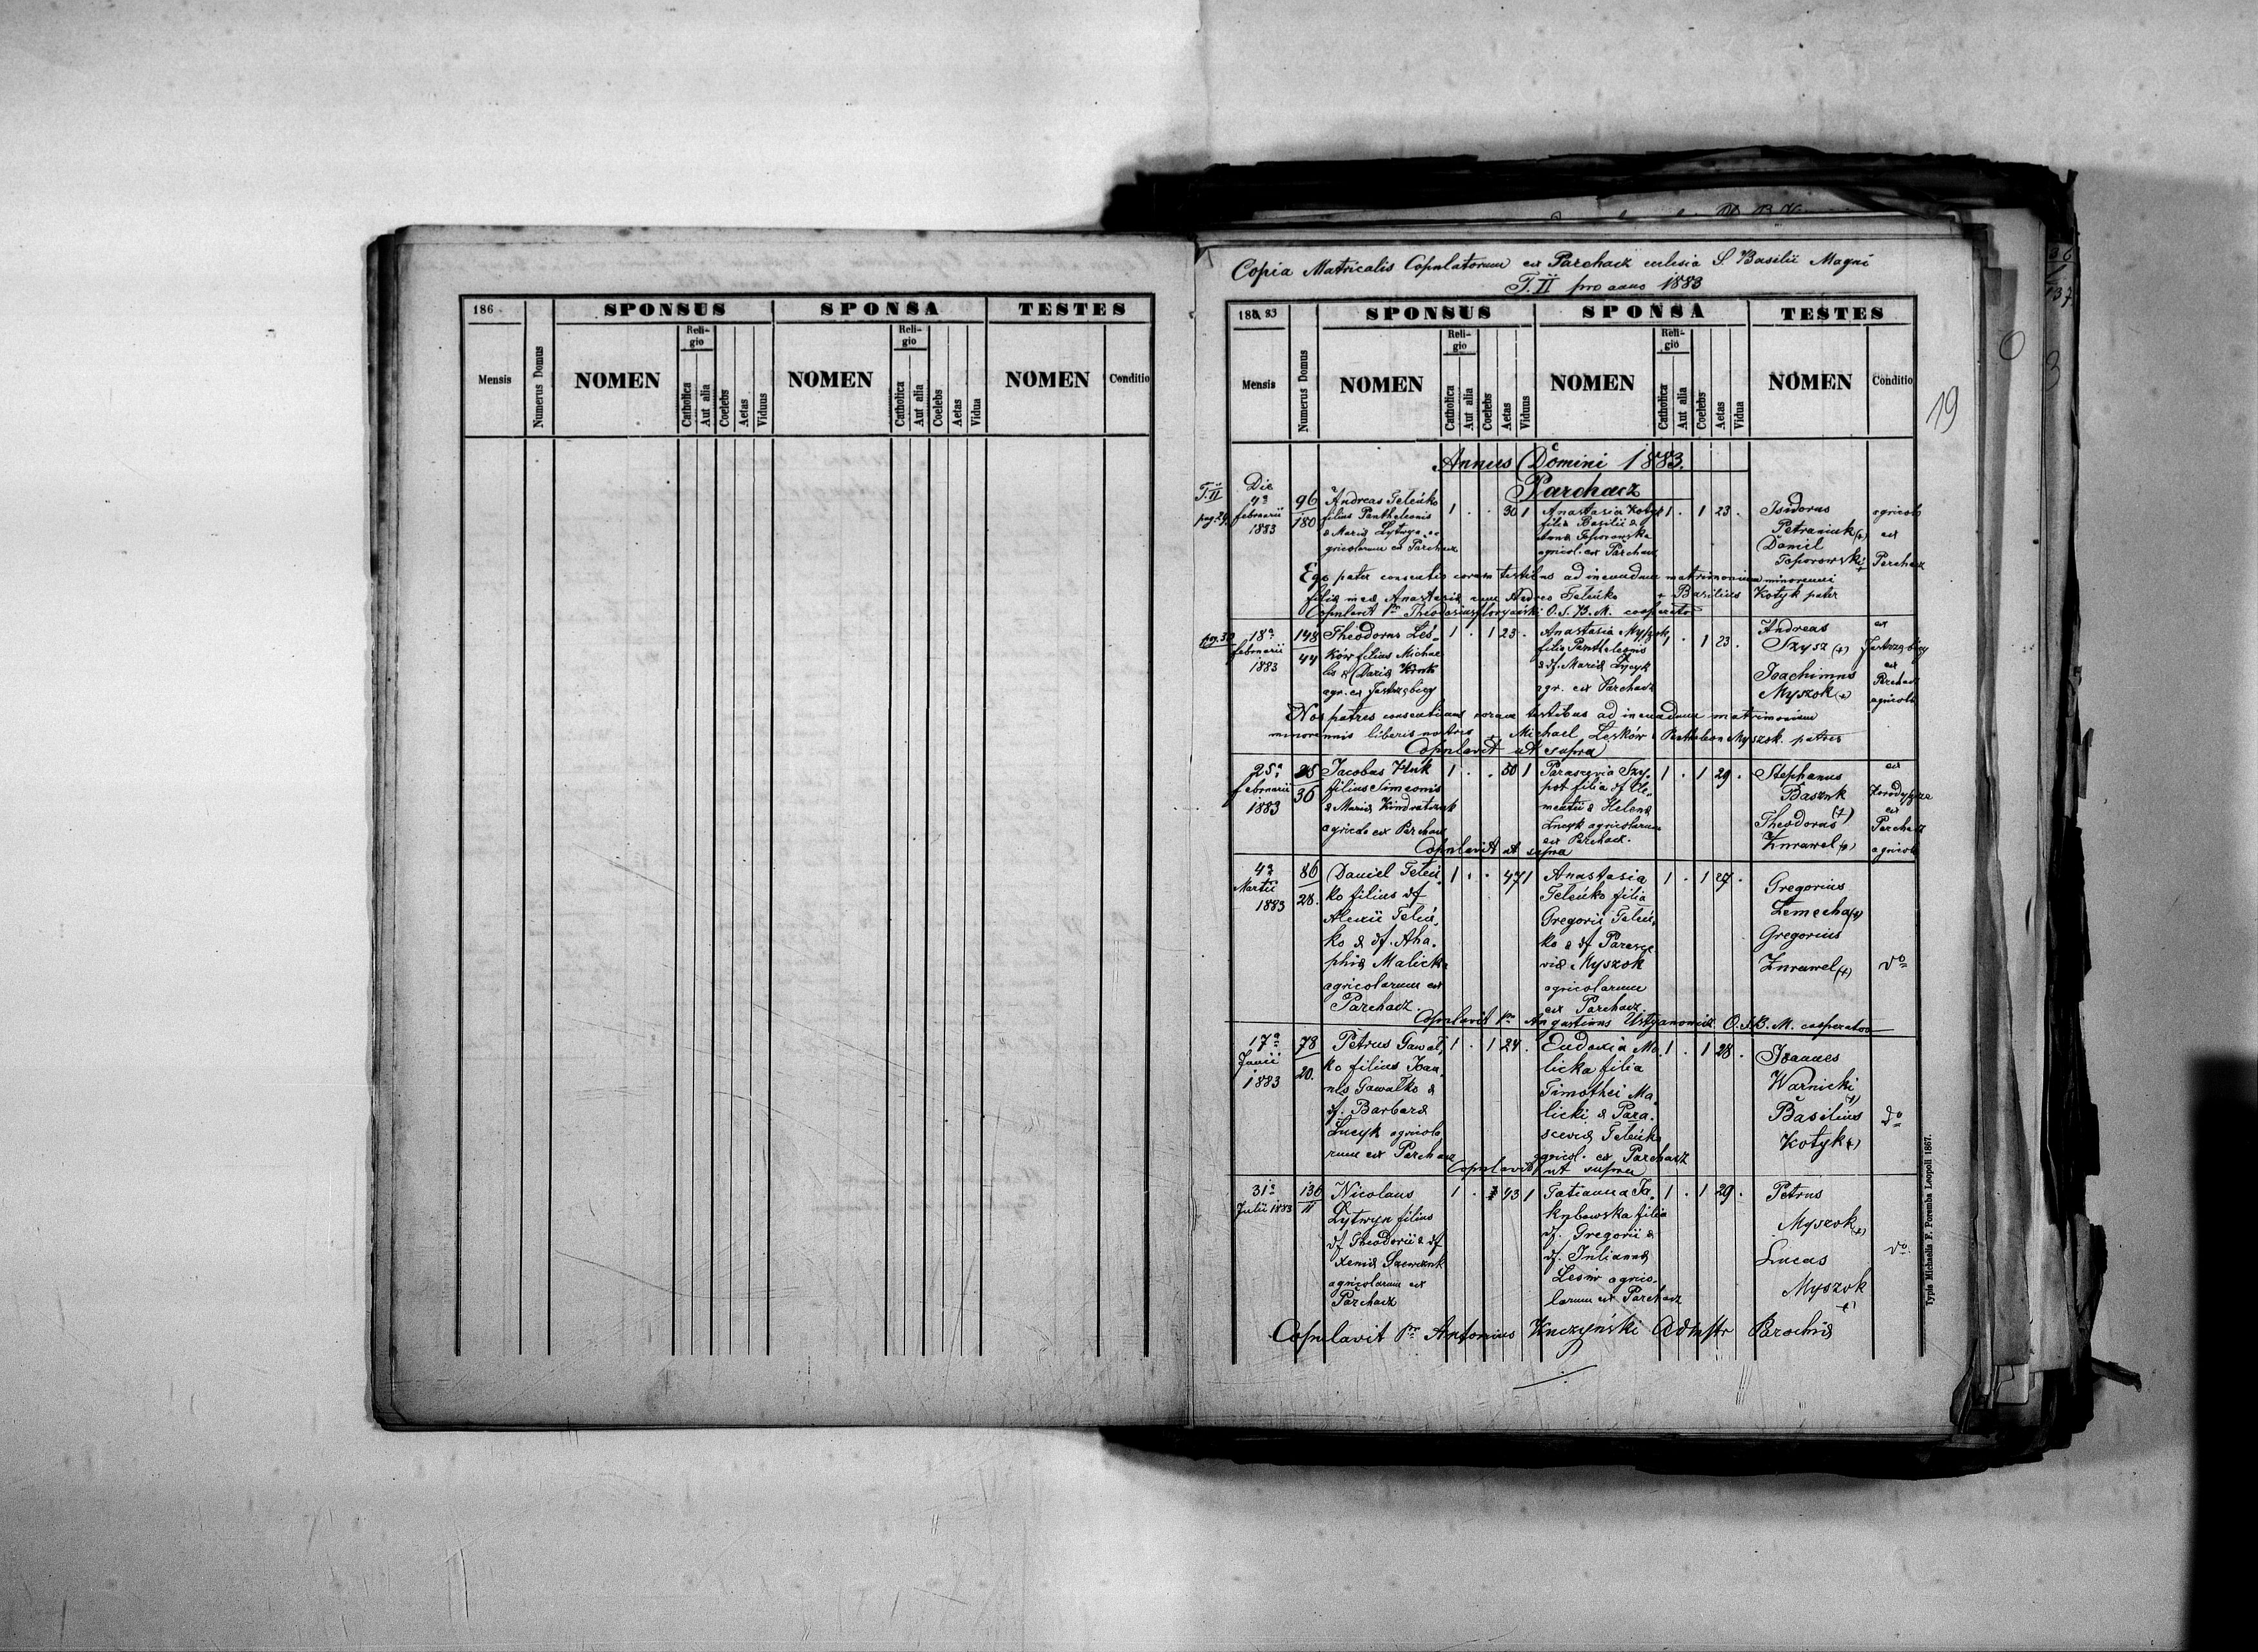 186
SPONSUS
SPONSA
TESTES
Mensis
Numerus Domus
NOMEN
Religio
Catholica
Aut alia
Coelebs
Aetas
Viduus
NOMEN
Religio
Catholica
Aut alia
Coelebs
Aetas
Vidua
NOMEN
Conditio
Copia Matricalis Copulatorum ex Parchacz ecclesia S. Basilii Magni
T. II pro anno 1883
19
186 83
SPONSUS
SPONSA
TESTES
Mensis
Numerus Domus
NOMEN
Religio
Catholica
Aut alia
Coelebs
Aetas
Viduus
NOMEN
Religio
Catholica
Aut alia
Coelebs
Aetas
Vidua
NOMEN
Conditio
Annus Domini 1883.
Parchacz
T. II
pag. 29
Die
4a
februarii
1883
96
180
Andreas Teleńko
filius Pantheleonis
& Maria Lytwyn
gricolarum ex Parchacz
1 . . 30 1
Anastasia Kotyk
filia Basilii &
Anna Toporowska
agricol. ex Parchacz
1 . 1 23 .
Isidorus
Petraniuk (+)
Daniel
Toporowski +
agricola
ex
Parchacz
Ego pater consentio coram testibus ad ineundum matrimonium minorenni
filia mea Anastasia cum Andrea Teleńko + Basilius Kotyk pater
Copulavit Pr Theodosius O. S. B. M. cooperator
pag. 30
18a
februarii
1883
148
44
Theodorus Leś-
ków filius Michae
lis & Daria Hruk
agr. ex Jastrzębicy
1 . 1 23 .
Anastasia Myszok
filia Pantheleonis
& df. Maria Lycyk
agr. ex Parchacz
1 . 1 23 .
Andreas
Szysz (+)
Joachimus
Myszok (+)
ex
Jastrzębicy
ex
Parchacz
agricola
Nos patres consentimus coram testibus ad ineundum matrimonium
minorennis liberis nostris + Michael Leśków Pantheleon Myszok patres
Copulavit ut supra
25a
februarii
1883
25
36
Jacobus Huk
filius Simeonis
& Maria Kindratczuk
agricola ex Parchacz
1 . . 50 1
Parascevia Szy-
pot filia df Cle-
mentii & Helena
Lucyk agricolarum
ex Parchacz.
1 . 1 29 .
Stephanus
Baszuk
(+)
Theodorus
Zurawel (+)
ex
ex
Parchacz
agricola
Copulavit ut supra
4a
Martii
1883
86
28.
Daniel Teleń-
ko filius df
Alexii Teleń-
ko & df. Aha-
phia Malicka
agricolarum ex
Parchacz.
1 . . 47 1
Anastasia
Teleńko filia
Gregorii Teleń-
ko & df. Parasce
via Myszok
agricolarum
ex Parchacz
1 . 1 27 .
Gregorius
Lemecha (+)
Gregorius
Zurawel (+)
do
Copulavit Pr Augustinus Ustyanowicz O. S. B. M. cooperator
17a
Junii
1883
78
20.
Petrus Gawał-
ko filius Joan-
nis Gawałko &
df. Barbara
Lucyk agricola
rum ex Parchacz
1 . 1 24 .
Eudoxia Ma-
licka filia
Timothei Ma-
licki & Para-
scevia Teleńko
agricol. ex Parchacz
1 . 1 28 .
Joannes
Warnicki
(+)
Basilius
Kotyk (+)
do
Copulavit ut supra
31a
Julii 1883
136
11
Nicolaus
Lytwyn filius
df Theodorii & df
Xenia Szewczuk
agricolarum ex
Parchacz
1 . 43 1
Tatianna Ja-
kubowska filia
df. Gregorii &
df. Julianna
Lesiw agrico-
larum ex Parchacz
1 . 1 29 .
Petrus
Myszok (+)
Lucas
Myszok
(+)
do
Copulavit Pr Antonius Kuczyński Admstr Parochia
Typis Michaelis F. Poremba Leopoli 1867.